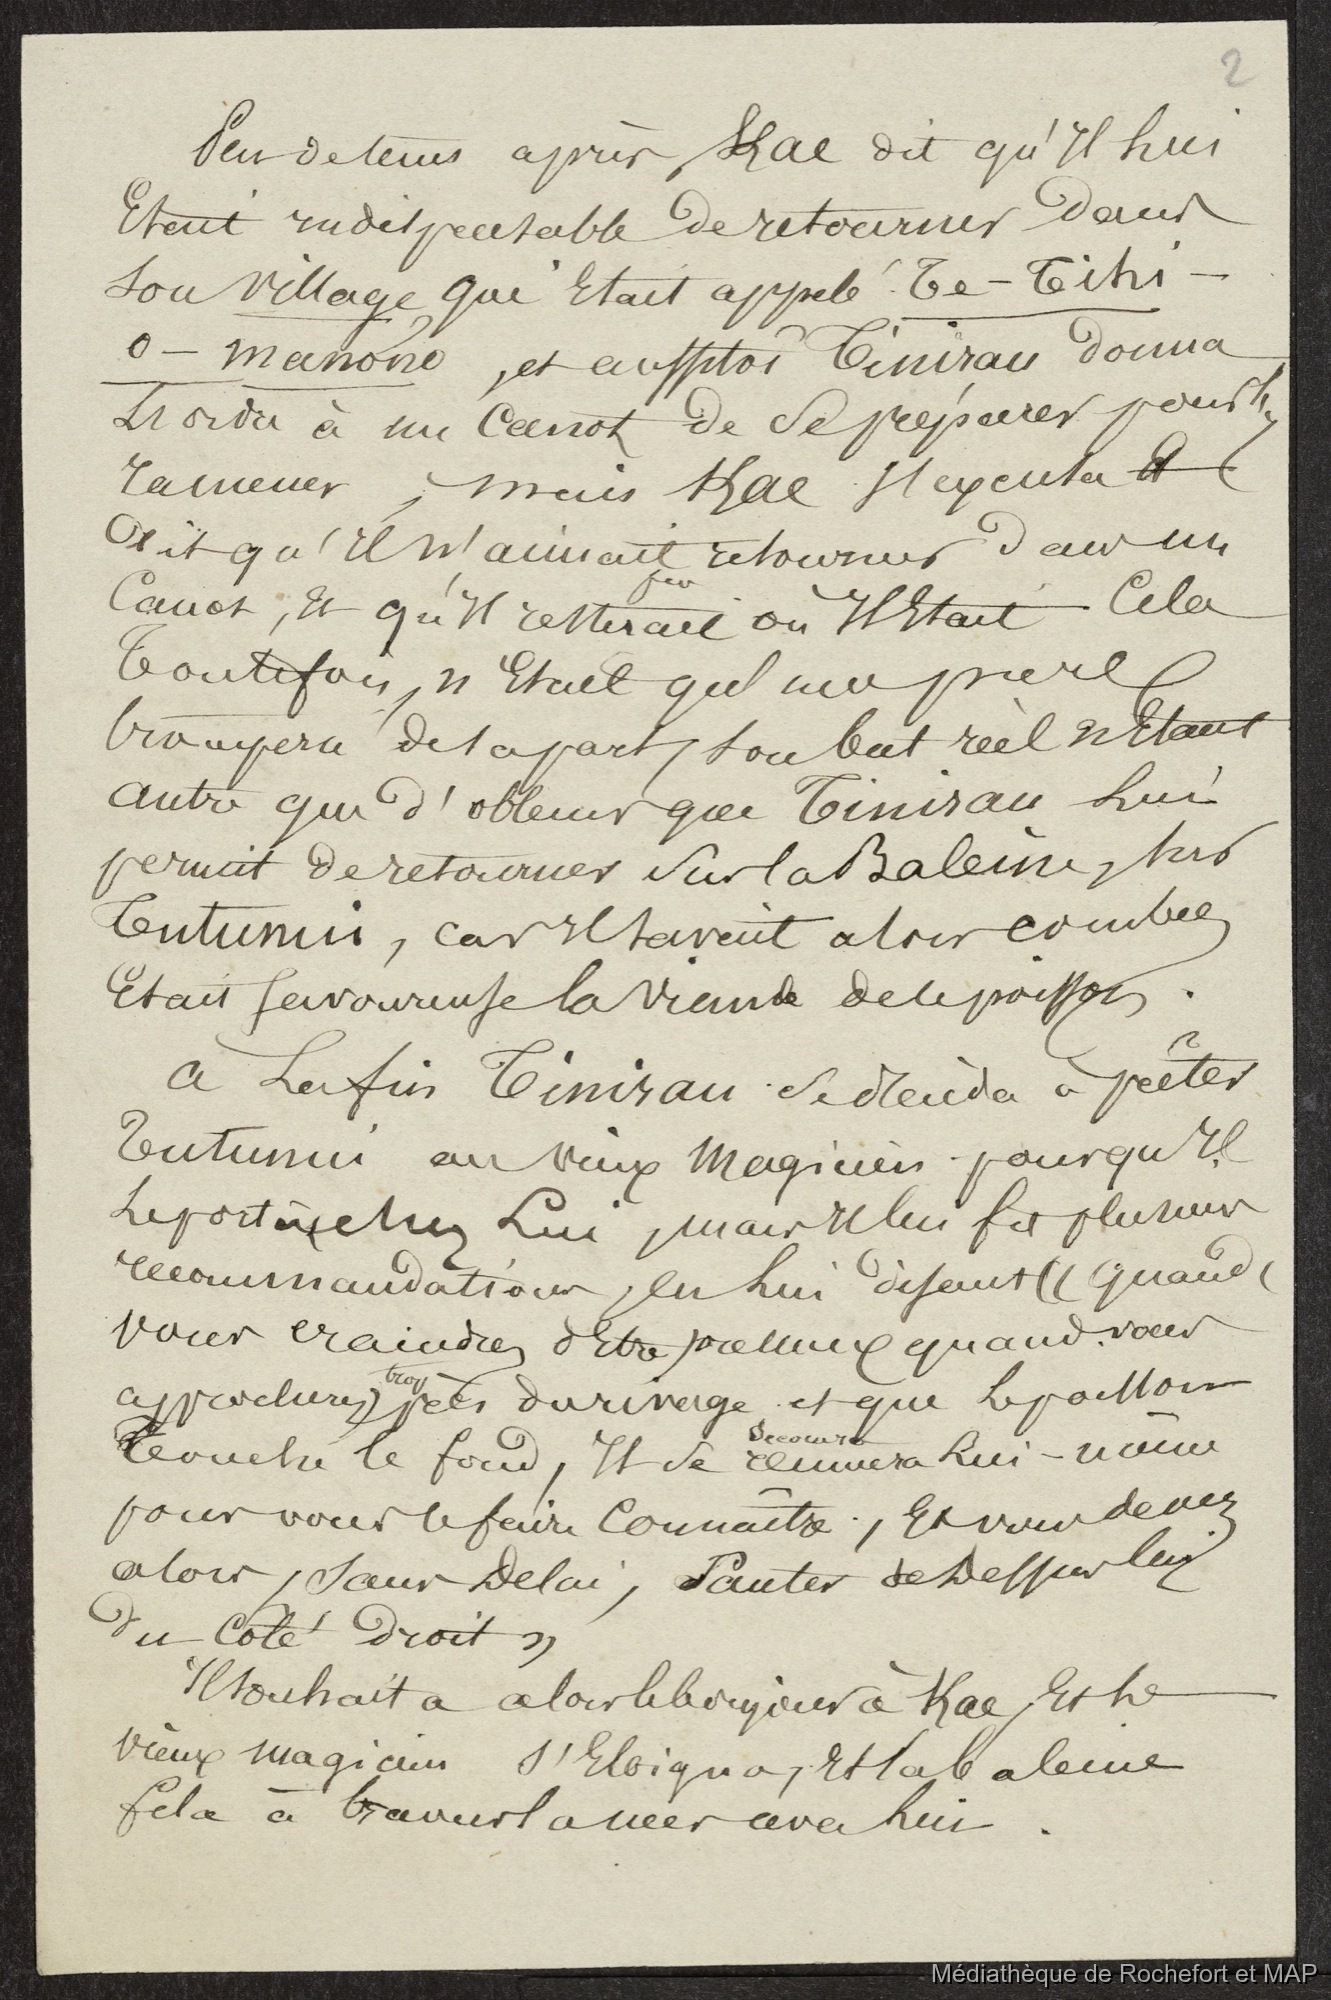 2
Peu de tems après, Kae dit qu'Il lui
Etait indispensable de retourner dans
son village qui Etait appelé Te-Tihi-
o-manono, et aussitôt Tinirau donna
l'ordre à un Canot de se préparer pour l'y
ramener, mais Kae s'excusa et
dit qu'Il n'aimait retourner dans un
Canot, et qu'Il resterait où Il Etait Cela
Toutefois, n'Etait qu'une pure
tromperie de sa part, son but réel n'Etant
autre que d'obtenir que Tinirau lui
permit de retourner sur la Baleine, sur
Tutunui, car Il savait alors combien
Etait savoureuse la viande de ce poisson.
a La fin Tinirau se décida à prêter
Tutunui au vieux Magicien pour qu'Il
le portât chez Lui, mais Il lui fit plusieurs
recommandations, en lui disant « quand
vous craindrez d'Etre, quand vous
approcherez trop près du rivage et que le poisson
Touche le fond, Il se secouera lui-même
pour vous le faire Connaître, Et vous devez
alors, sans Delai, Sauter de Dessus lui
du Côté droit »
Il souhaita alors le bonjour à Kae, Et le
vieux magicien s'Eloigna, Et la baleine
fila à travers la mer avec lui.
Médiathèque de Rochefort et MAP